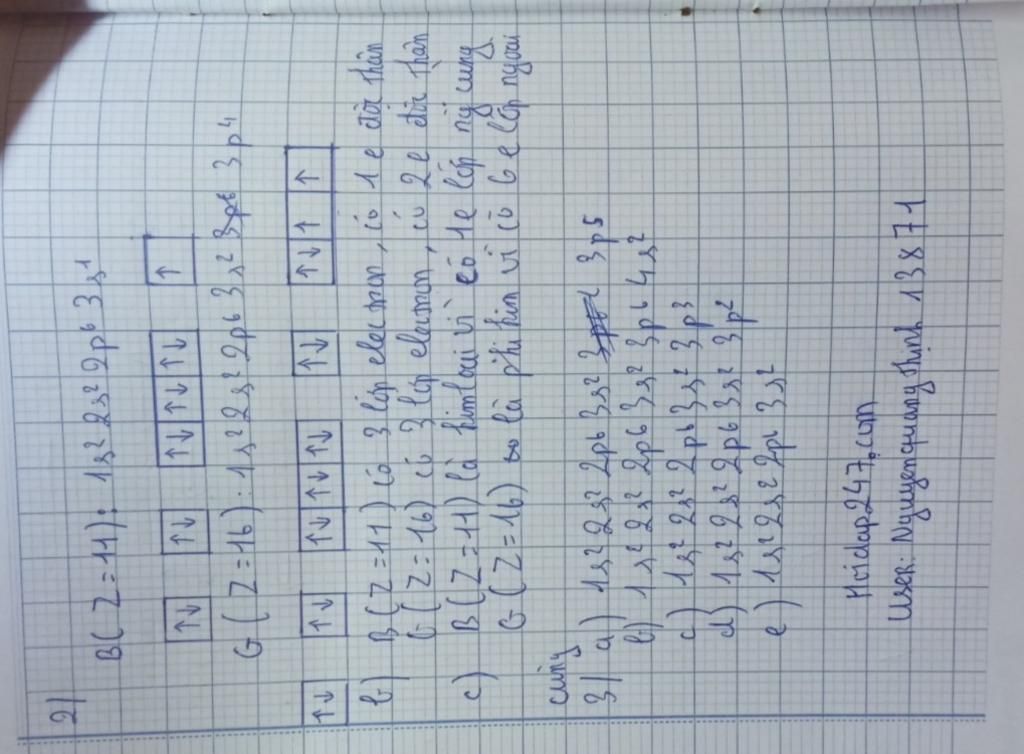 2)
B(Z=11): 1s² 2s² 2p⁶ 3s¹
↑↓ ↑↓ ↑↓ ↑↓ ↑↓ ↑
G(Z=16): 1s² 2s² 2p⁶ 3s² 3p⁶ 3p⁴
↑↓ ↑↓ ↑↓ ↑↓ ↑↓ ↑↓ ↑↓ ↑ ↑
b) B(Z=11) có 3 lớp electron, có 1e độc thân
G(Z=16) có 3 lớp electron, có 2e độc thân
c) B(Z=11) là kim loại vì có 1e lớp ng cùng
G(Z=16) là phi kim vì có 6e lớp ngoài
cùng
3) a) 1s² 2s² 2p⁶ 3s² 3p⁵
b) 1s² 2s² 2p⁶ 3s² 3p⁶ 4s²
c) 1s² 2s² 2p⁶ 3s² 3p³
d) 1s² 2s² 2p⁶ 3s² 3p²
e) 1s² 2s² 2p⁶ 3s²
Hoidap247.com
User: Nguyenquangthinh13871